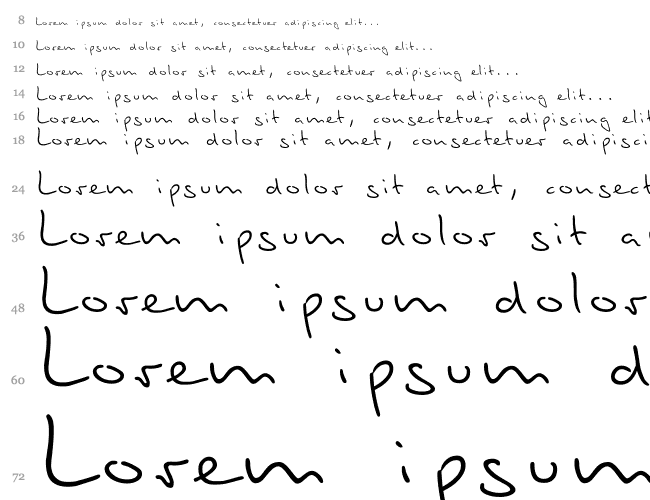 8 Lorem ipsum dolor sit amet, consectetuer adipiscing elit...
10 Lorem ipsum dolor sit amet, consectetuer adipiscing elit...
12 Lorem ipsum dolor sit amet, consectetuer adipiscing elit...
14 Lorem ipsum dolor sit amet, consectetuer adipiscing elit...
16 Lorem ipsum dolor sit amet, consectetuer adipiscing elit
18 Lorem ipsum dolor sit amet, consectetuer adipisci
24 Lorem ipsum dolor sit amet, consect
36 Lorem ipsum dolor sit a
48 Lorem ipsum dolor
60 Lorem ipsum d
72 Lorem ipsum